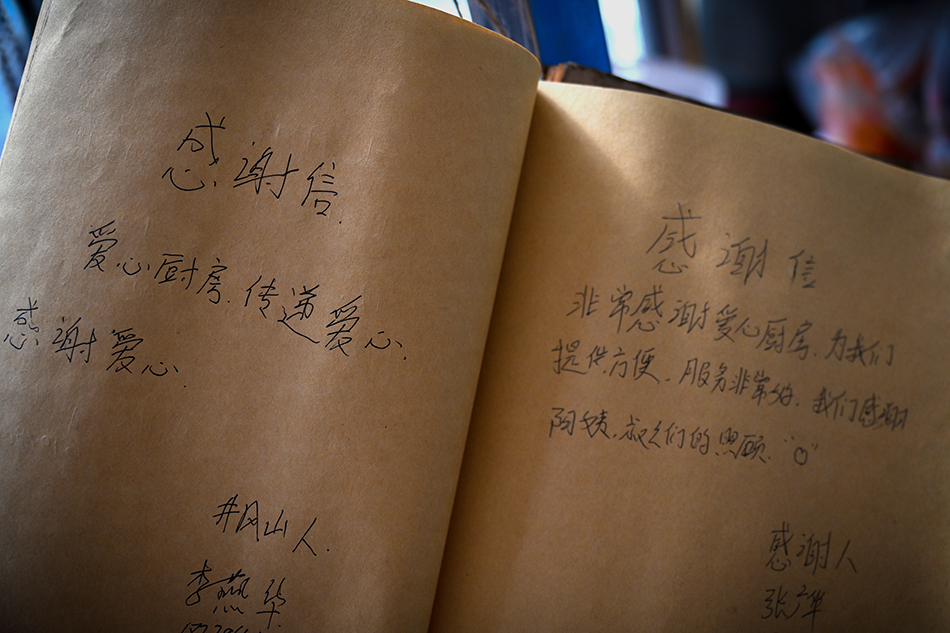 感谢信.
爱心厨房.传递爱心.
感谢爱心.
井冈山人.
李燕华
感谢信
非常感谢爱心厨房.为我们
提供方便.服务非常好.我们感谢
阿姨.叔叔们的照顾.
感谢人
张广华